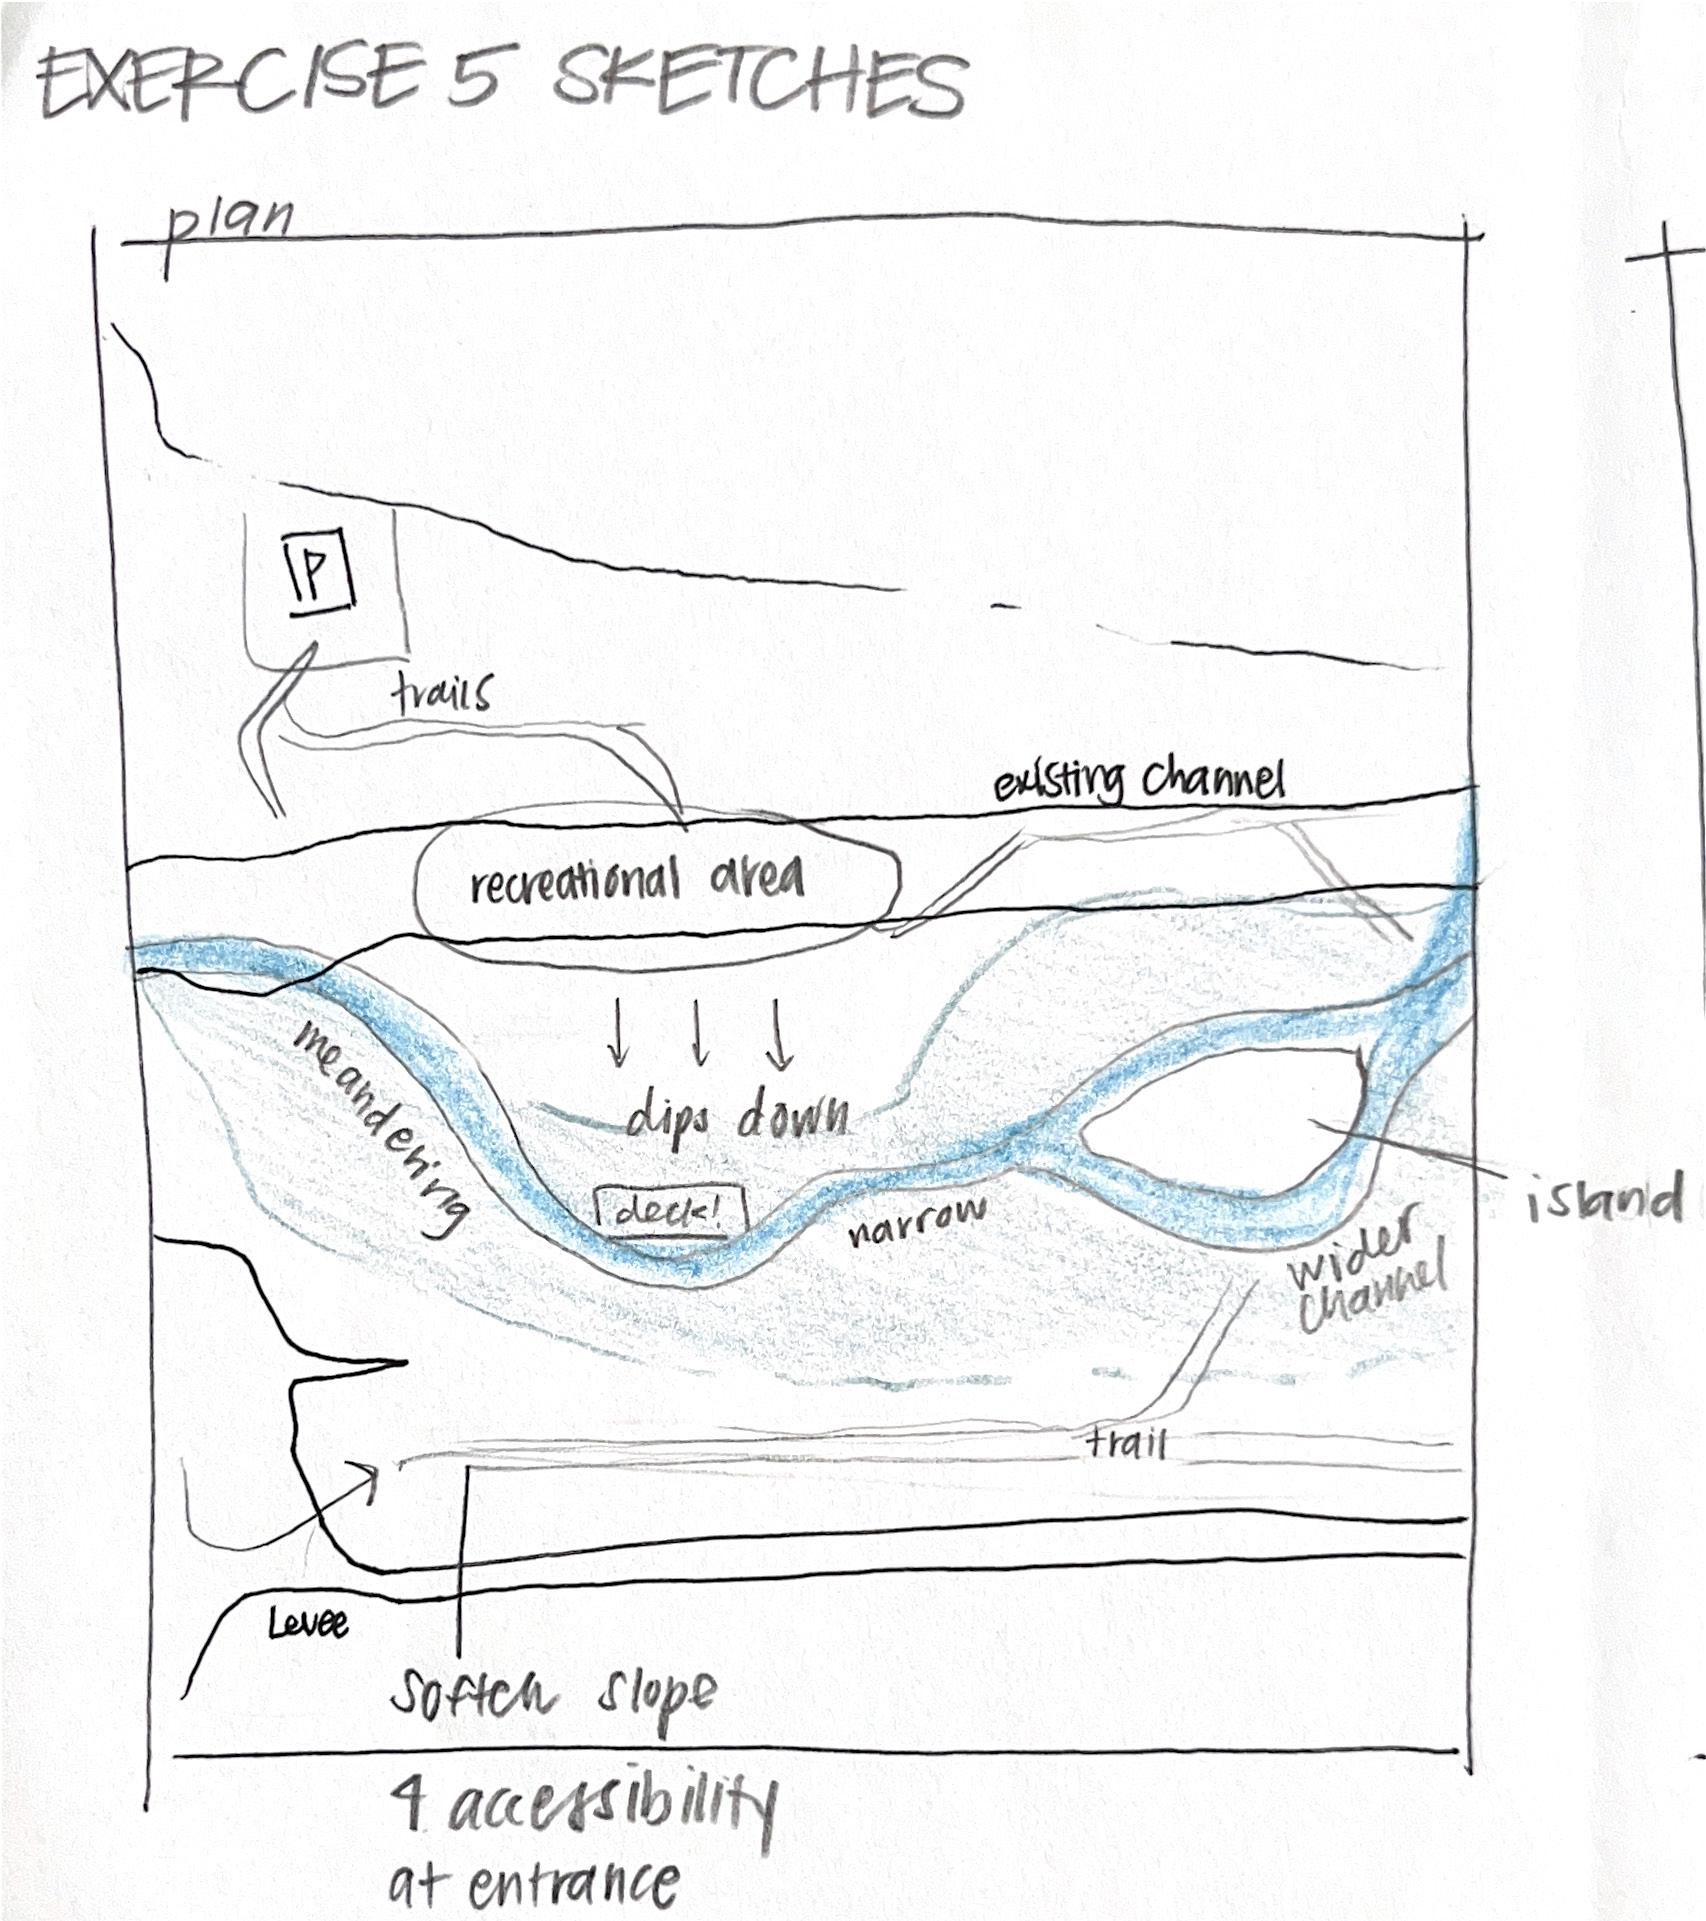 EXERCISE 5 SKETCHES
plan
P
trails
existing channel
recreational area
meandering
dips down
deck!
narrow
island
wider
channel
trail
Levee
soften slope
4 accessibility
at entrance